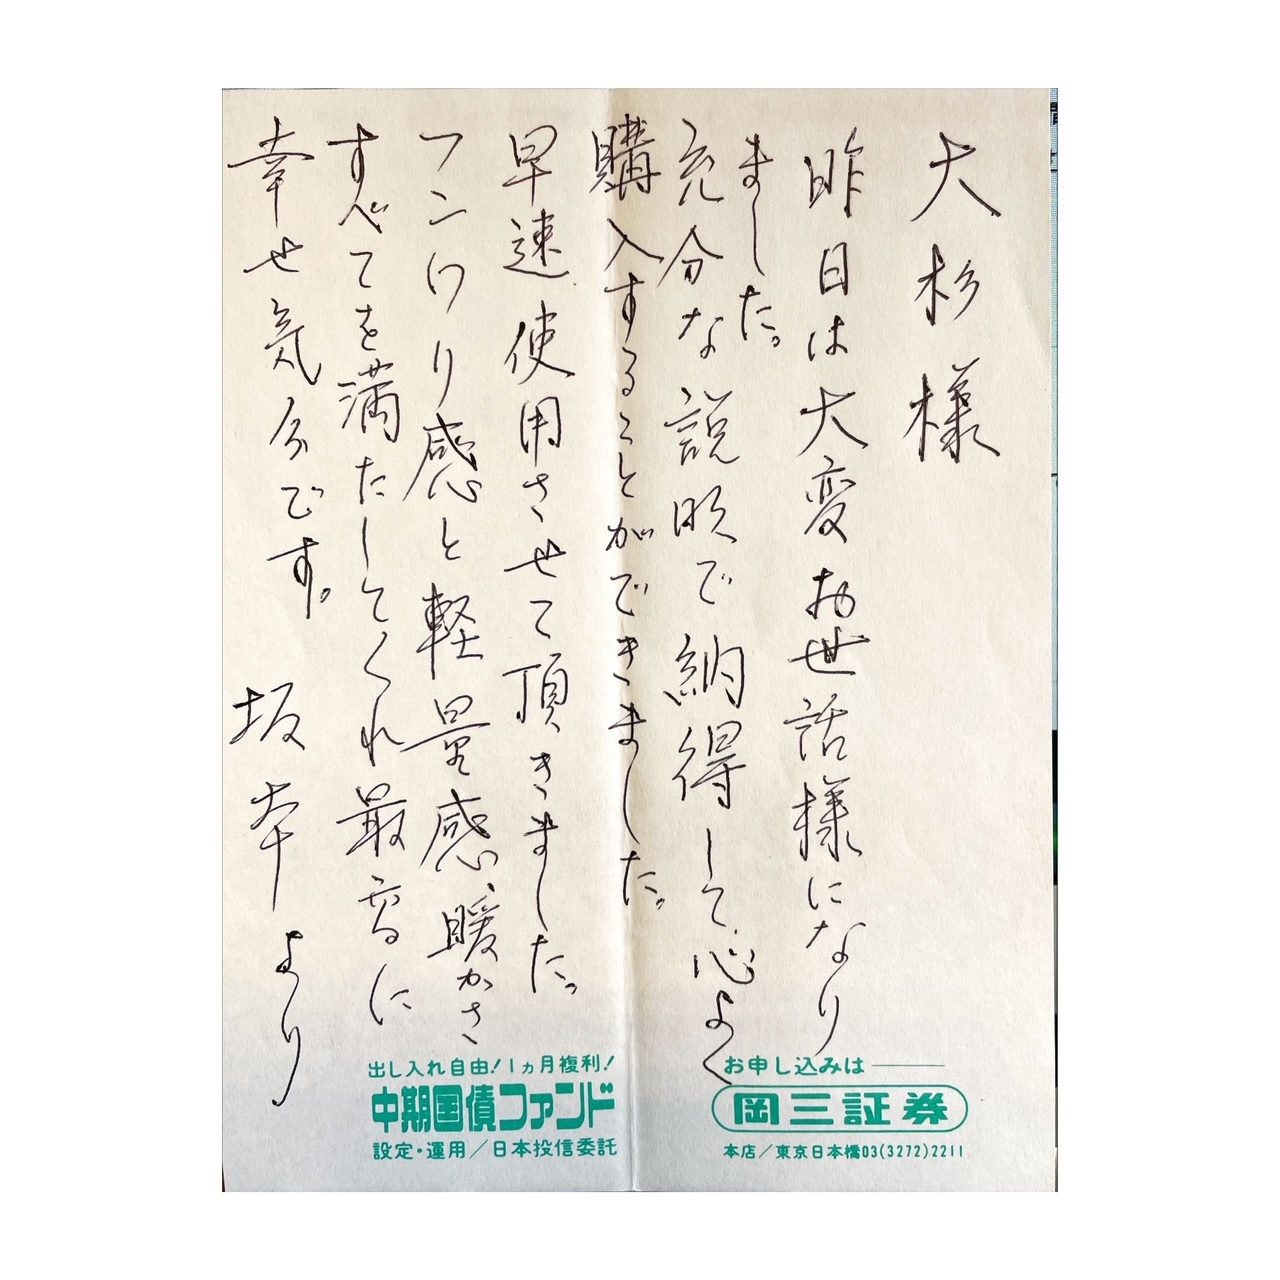 大杉様
昨日は大変お世話様になり
ました。
充分な説明で納得して心よく
購入することができました。
早速使用させて頂きました。
フンワリ感と軽量感、暖かさ
すべてを満たしてくれ最高に
幸せ気分です。
坂本より
お申し込みは
岡三証券
本店／東京日本橋03(3272)2211
出し入れ自由!1ヵ月複利!
中期国債ファンド
設定・運用／日本投信委託